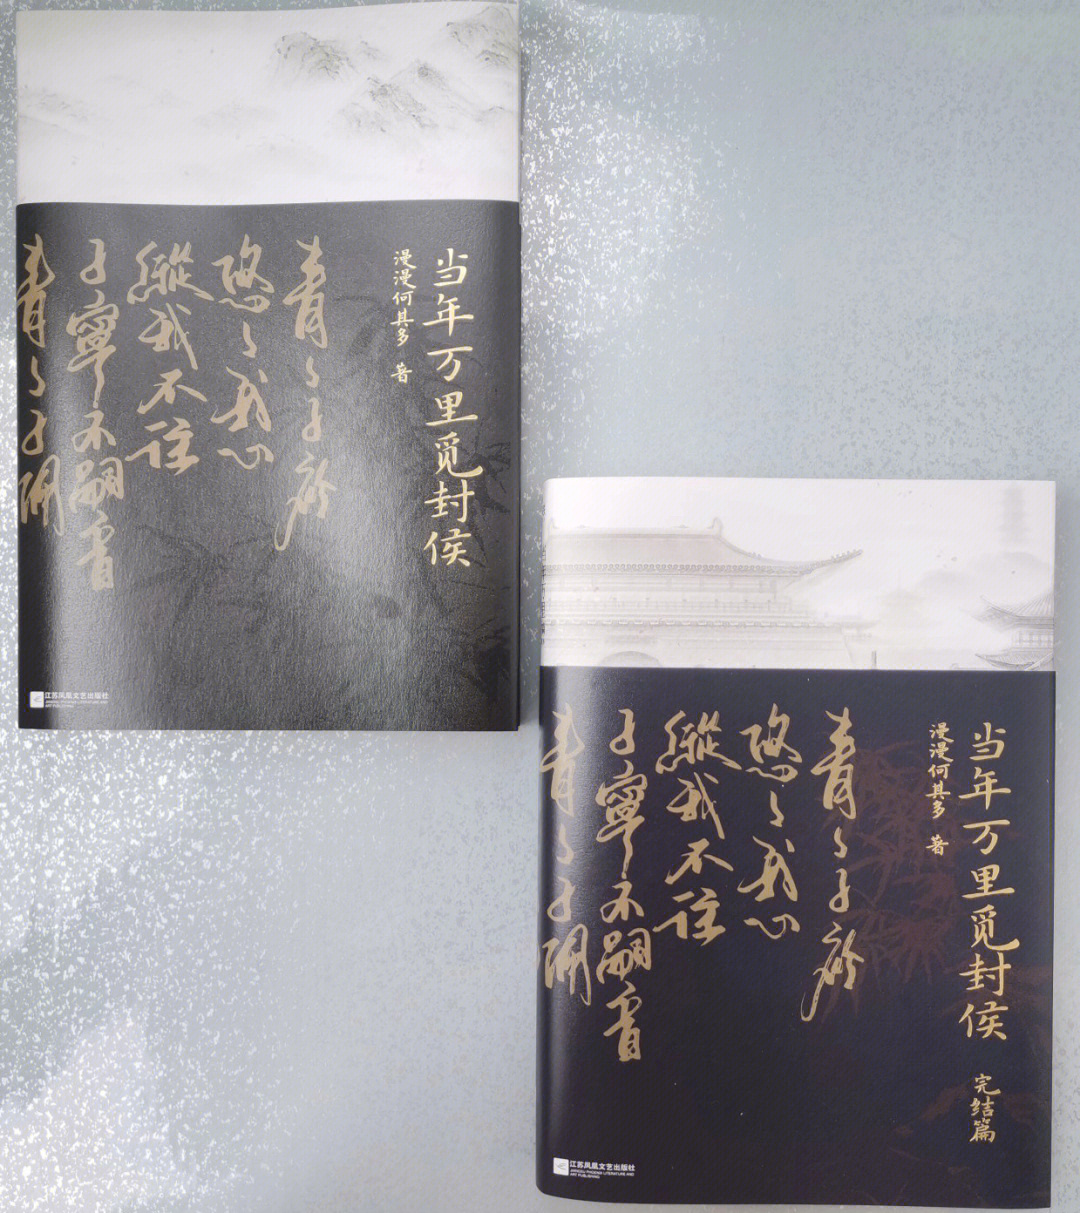 当年万里觅封侯
漫漫何其多 著
青々子衿
悠々我心
縱我不往
子寧不嗣音
青々子
江苏凤凰文艺出版社
JIANGSU PHOENIX LITERATURE AND
ART PUBLISHING
当年万里觅封侯
完结篇
漫漫何其多 著
青々子衿
悠々我心
縱我不往
子寧不嗣音
青々子
江苏凤凰文艺出版社
JIANGSU PHOENIX LITERATURE AND
ART PUBLISHING